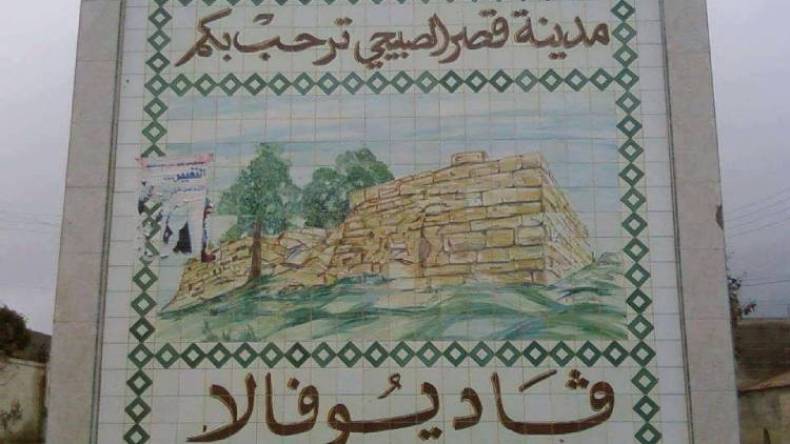 مدينة قصر الصبيحي ترحبْ بكم
ڤَاديُوفالا